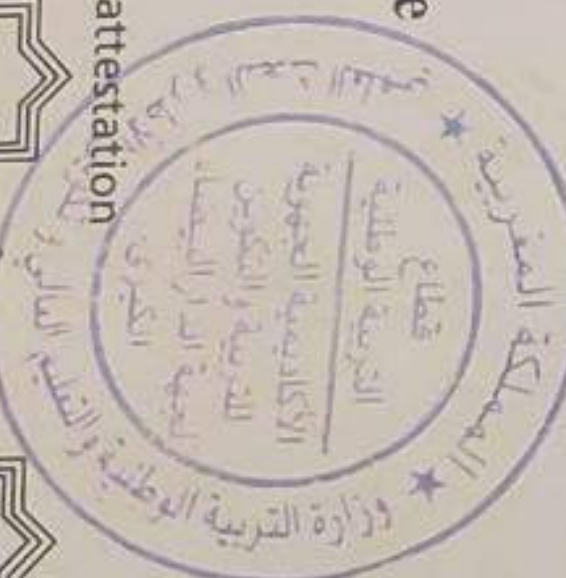 e
attestation
المملكة المغربية
وزارة التربية الوطنية والتعليم العالي و الأطر و البحث العلمي
قطاع
التربية الوطنية
الأكاديمية الجهوية
للتربية والتكوين
لجهة الدار البيضاء
الكبرى